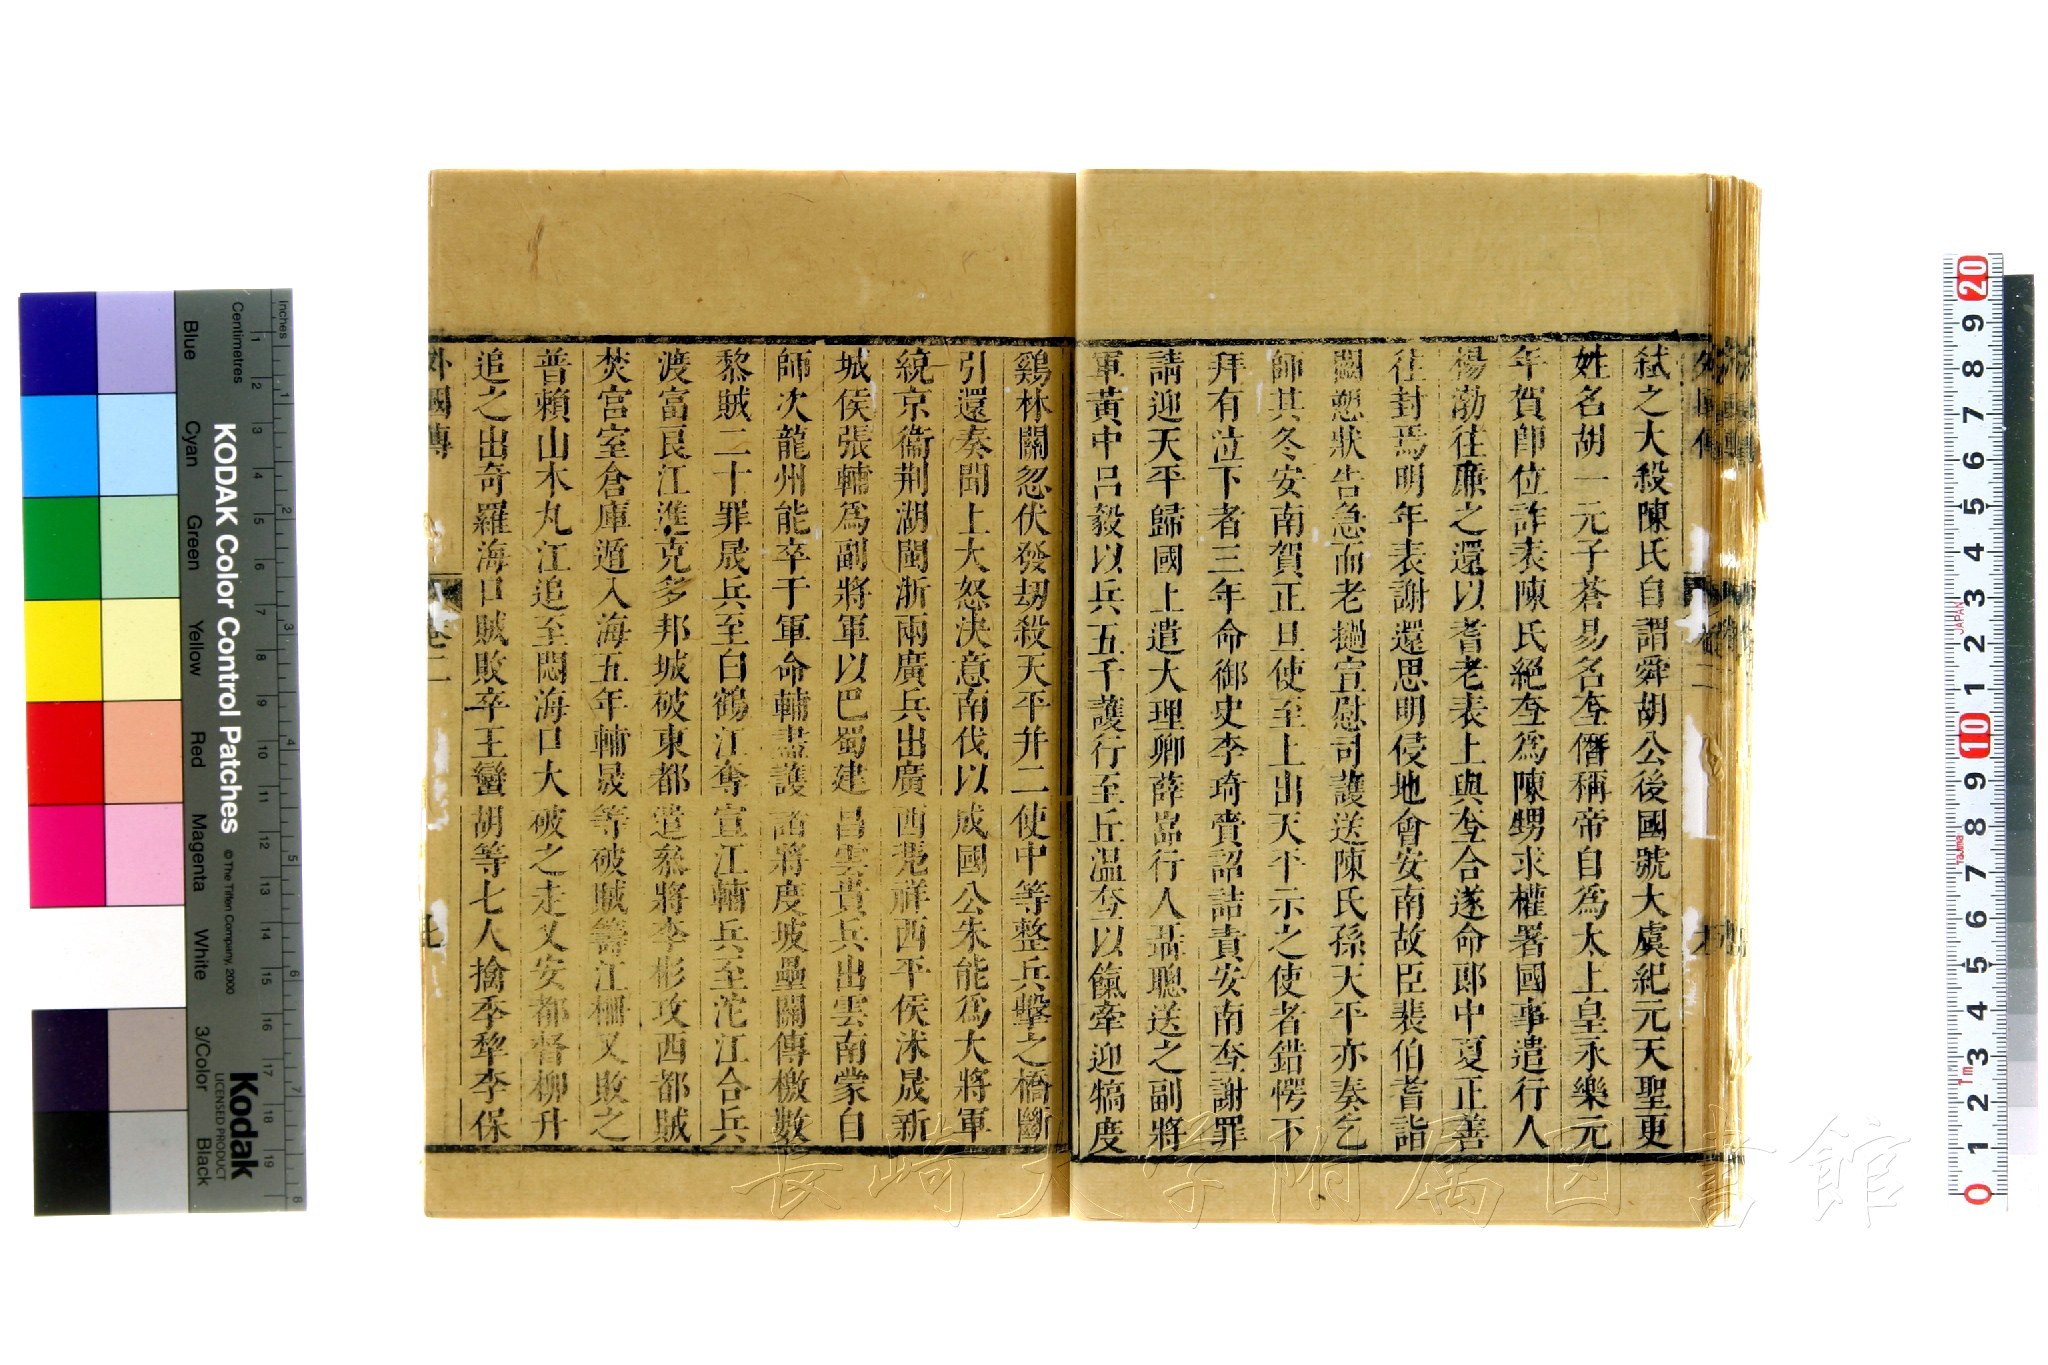 弑之大殺陳氏自謂舜胡公後國號大虞紀元天聖更
姓名胡一元子蒼易名𡗨僭稱帝自爲太上皇永樂元
年賀卽位詐表陳氏絕𡗨爲陳甥求權署國事遣行人
楊渤往廉之還以耆老表上與𡗨合遂命郎中夏正善
往封焉明年表謝還思明侵地會安南故臣裴伯耆詣
闕愬狀告急而老撾宣慰司護送陳氏孫天平亦奏乞
師其冬安南賀正旦使至上出天平示之使者錯愕下
拜有泣下者三年命御史李琦賫詔詰責安南𡗨謝罪
請迎天平歸國上遣大理卿薛嵓行人聶聰送之副將
軍黃中呂毅以兵五千護行至丘溫𡗨以餼牽迎犒度
鷄林關忽伏發刼殺天平并二使中等整兵擊之橋斷
引還奏聞上大怒決意南伐以成國公朱能爲大將軍
統京衞荆湖閩浙兩廣兵出廣西憑祥西平侯沐晟新
城侯張輔爲副將軍以巴蜀建昌雲貴兵出雲南蒙自
師次龍州能卒于軍命輔盡護諸將度坡壘關傳檄數
黎賊二十罪晟兵至白鶴江奪宣江輔兵至沱江合兵
渡富良江進克多邦城破東都遣叅將李彬攻西都賊
焚宮室倉庫遁入海五年輔晟等破賊籌江柵又敗之
普賴山木丸江追至悶海口大破之走又安都督柳升
追之出奇羅海口賊敗卒王蠻胡等七人擒季犂李保
外國傳
卷二
Blue Cyan Green Yellow Red Magenta White 3/Color Black
KODAK Color Control Patches
© The Tiffen Company, 2000
Kodak
LICENSED PRODUCT
Centimetres
inches
長崎大学附属図書館